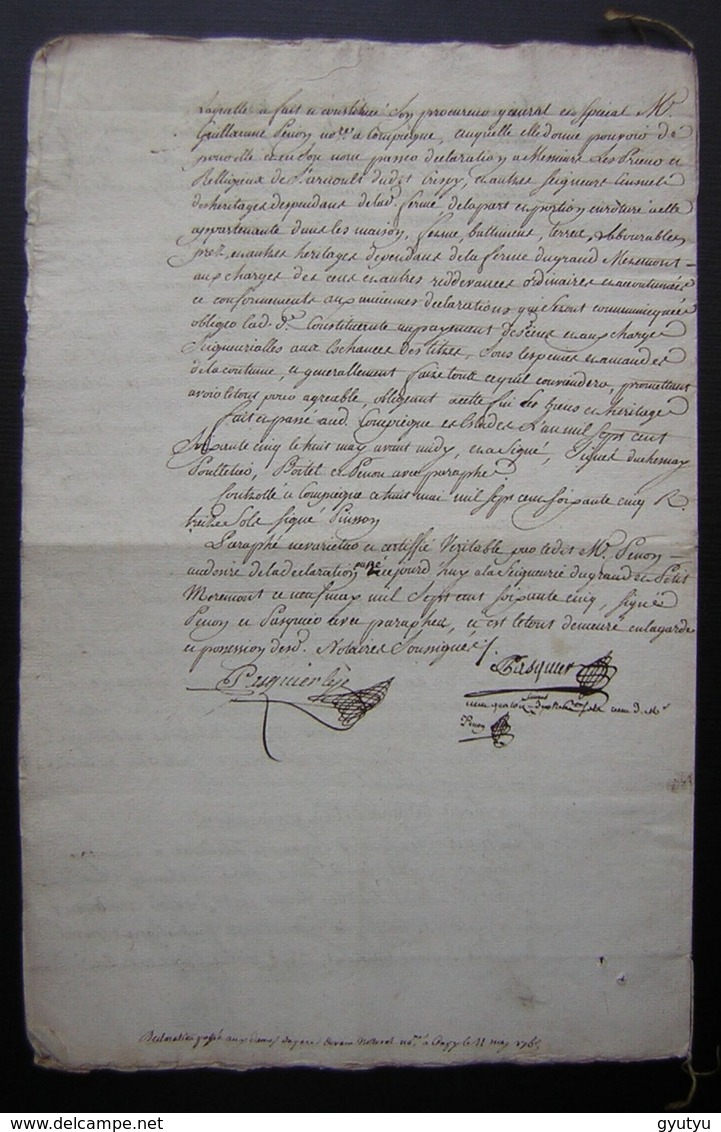 Laquelle a fait et constitué son procureur general et special Mr.
Guillaume Penon nore. a Compiegne, auquelle elle donne pouvoir de
pour elle et en son nom passer declaration a Messieurs Les Prieur et
Relligieux de St arnoult dudit Crespy, et autres seigneurs
des heritages dependans de lad. ferme de la part et portion en roture a elle
appartenante dans les maison, ferme, battiment, terres, labourables,
prez, et autres heritages dependans de la ferme du grand Meremont
aux charges des cens et autres reddevances ordinaires et accoutumées
et conformements aux anciennes declarations qui seront communiquées
obliger lad. de. Constituante au payement desd. cens et aux charges
seigneurialles aux Eschéances des titres, sous les peines et amandes
de la coutume, et generallement faire toute ce qu'il conviendera, promettant
avoir le tous pour agreable, obligeant a cette fin ses biens et heritage
fait et passé aud. Compiegne es Etudes L'an mil sept cent
soixante cinq le huit may avant midy, et a signé, signés duchesnay
Poulletier, Portet et Penon avec paraphe.
Controllé a Compiegne ce huit mai mil sept cent soixante cinq R.
treize sols signé Pinson
Paraphé nevarietur et certiffié Veritable par ledit Mr. Penon
au desire de la declaration passé cejourd'huy a la Seigneurie du grand et Petit
Meremont ce neuf may mil sept cent soixante cinq, signé
Penon et Pasquier avec paraphes, et est le tous demeuré en la garde
et possession desd. Notaires Soussignés /.
Pasquier
Pasquier
Penon
Declaration passé aux dames devant nore. a Crepy le 11 may 1765
gyutyu